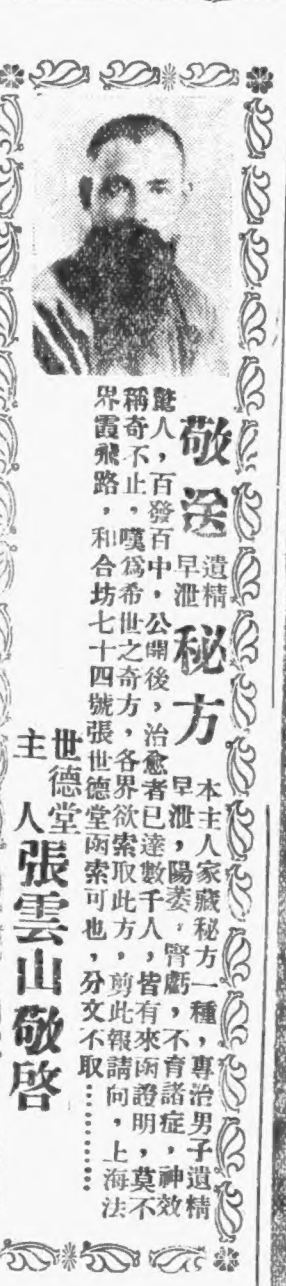 敬送遺精早泄秘方
本主人家藏秘方一種，專治男子遺精
早泄，陽萎，腎虧，不育諸症，神效
驚人，百發百中，公開後，治愈者已達數千人，皆有來函證明，莫不
稱奇不止，嘆爲希世之奇方，各界欲索取此方，剪此報請向，上海法
界霞飛路，和合坊七十四號張世德堂函索可也，分文不取…………
世德堂主人張雲山敬啓